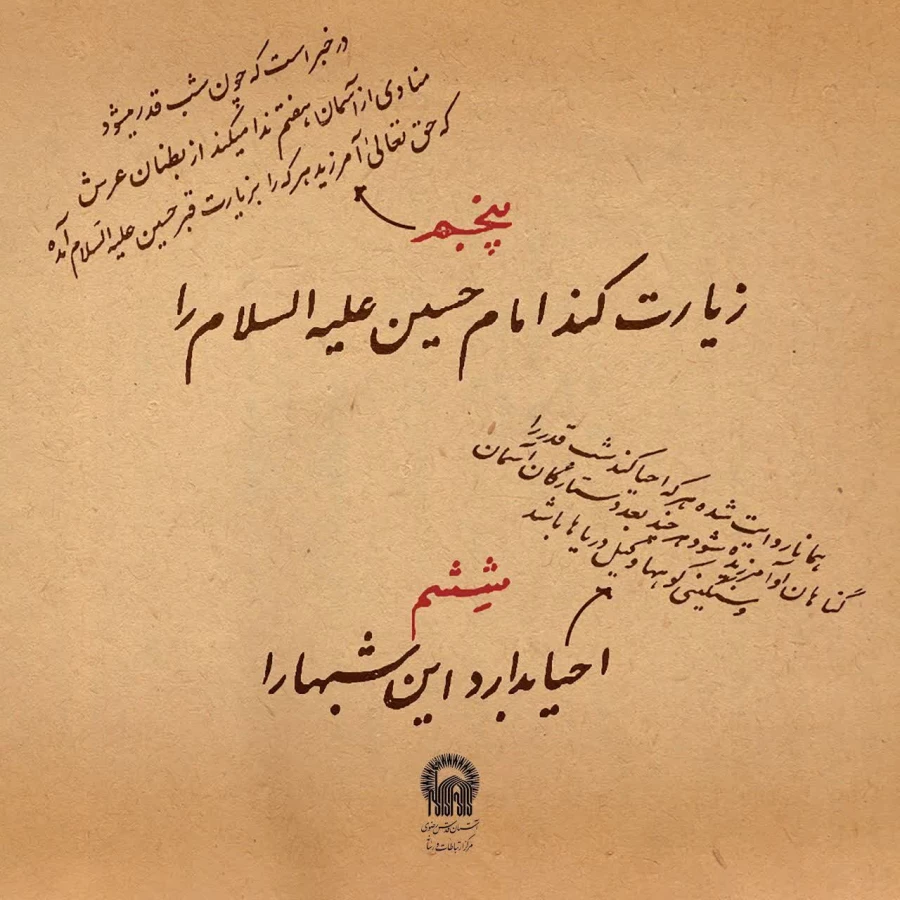 در خبر است که چون شب قدر میشود
منادی از آسمان هفتم ندا میکند از بطنان عرش
که حق تعالیٰ آمرزید هر که را بزیارت قبر حسین علیه السلام آمده
پنجم
زیارت کند امام حسین علیه السلام را
همانا روایت شده هر که احیا کند شب قدر را
گناهان او آمرزیده شود هر چند بعدد ستارگان آسمان
و سنگینی کوهها و کیل دریاها باشد
ششم
احیا بدارد این شبها را
آستان قدس رضوی
مرکز ارتباطات و رسانه